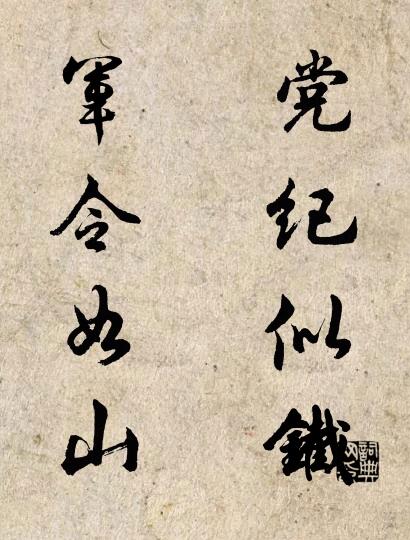 党紀似鐵
軍令如山
詞典